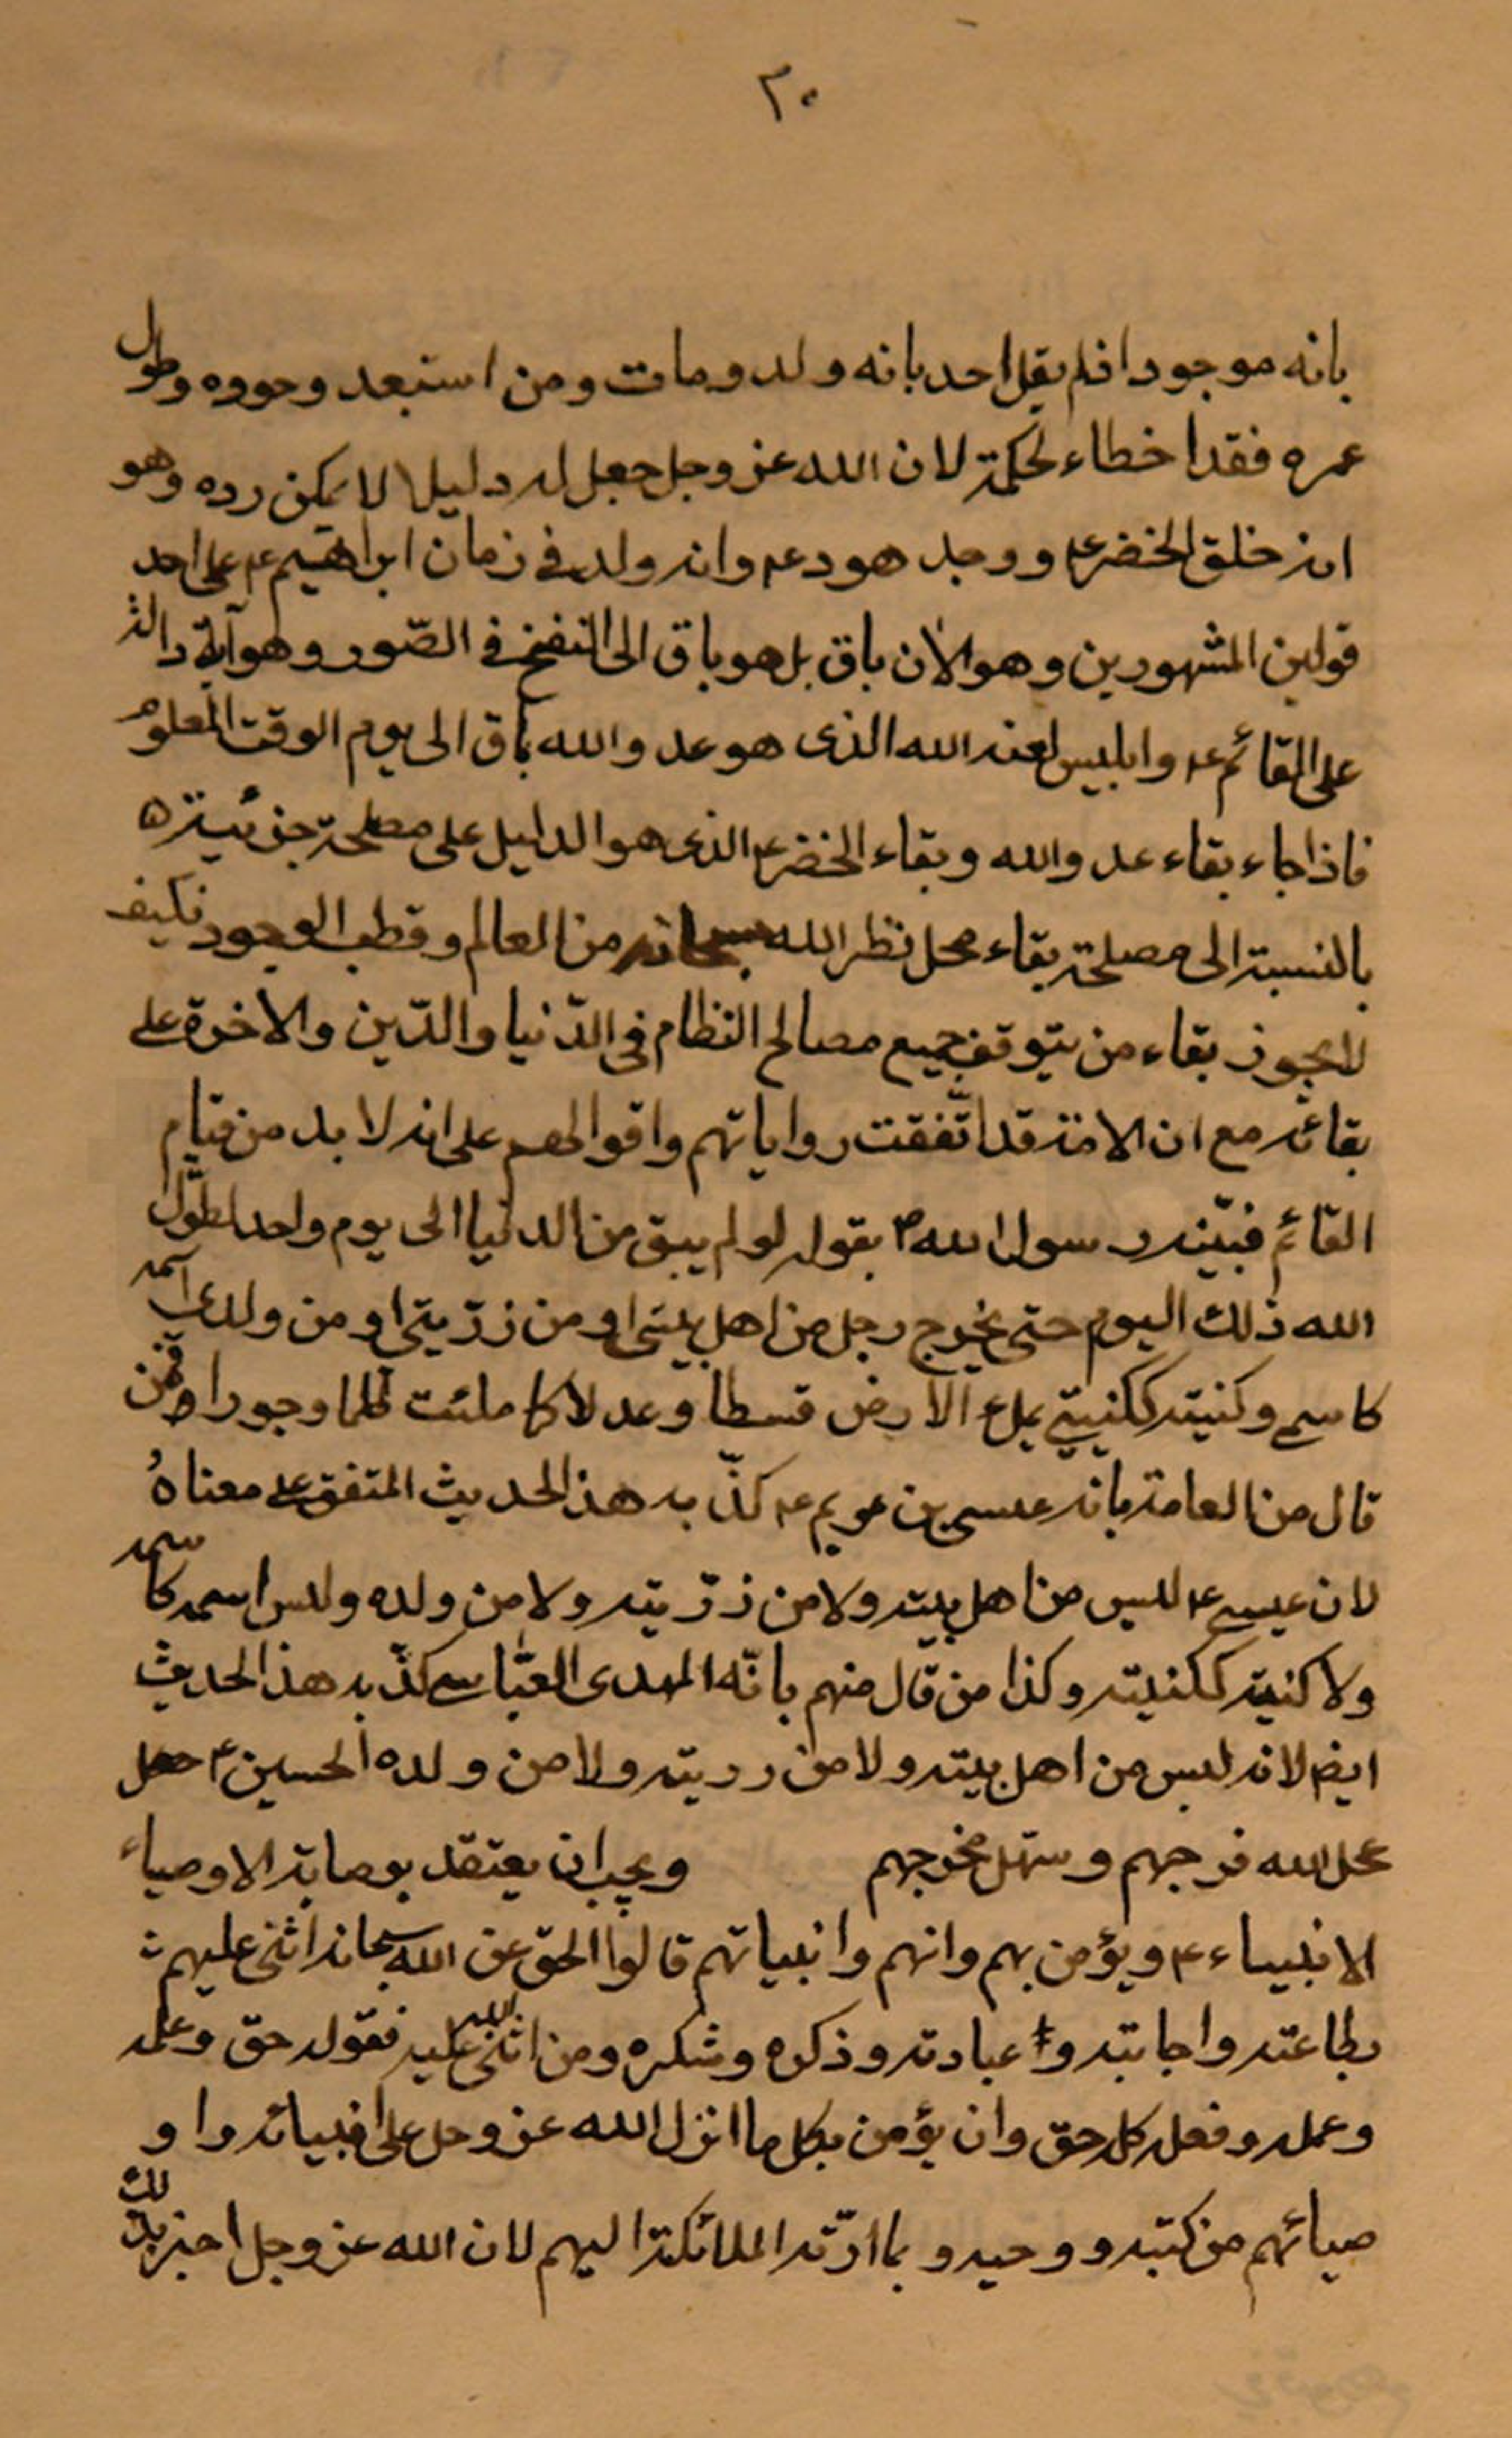 ٣٠
بانه موجودا فلم يقل احد بانه ولد ومات ومن استبعد وجوده وطول
عمره فقد اخطاء لحكمة لان الله عز وجل جعل له دليلا لا يمكن رده وهو
انه خلق الخضر ع وجد هود ع وانه ولد في زمان ابراهيم ع على احد
قولين المشهورين وهو الآن باق بل هو باق الى النفخ في الصّور وهو آية دالة
على القائم ع وابليس لعنه الله الذى هو عدو الله باق الى يوم الوقت المعلوم
فاذا جاء بقاء عدو الله وبقاء الخضر ع الذى هو الدليل على مصلحة جزئية ه
بالنسبة الى مصلحة بقاء محل نظر الله سبحانه من العالم وقطب الوجود فكيف
لا يجوز بقاء من يتوقف جميع مصالح النظام في الدّنيا والدّين والاخرة على
بقائه مع ان الامة قد اتّفقت رواياتهم واقوالهم على انه لا بد من قيام
القائم فبيّنه رسول الله ص بقوله لو لم يبق من الدنيا الى يوم واحد لطوّل
الله ذلك اليوم حتى يخرج رجل من اهل بيتى او من ذرّيتى او من ولدى اسمه
كاسمي وكنيته ككنيتي يملاء الارض قسطا وعدلا كما ملئت ظلما وجورا وفمن
قال من العامة بانه عيسى بن مريم ع كذّبه هذ الحديث المتفق على معناهُ
لان عيسى ع ليس من اهل بيته ولا من ذرّيته ولا من ولده وليس اسمه كاسمه
ولا كنيته ككنيته وكذا من قال منهم بانّه المهدى العبّاسي كذّبه هذ الحديث
ايضا لانه ليس من اهل بيته ولا من ذريته ولا من ولده الحسين ع جعل
عجل الله فرجهم وسهّل مخرجهم ويجب ان يعتقد بوصاية الاوصياء
الانبياء ع ويؤمن بهم وانهم وانبياتهم قالوا الحق عن الله سبحانه اثنى عليهم
بطاعته واجابته و عبادته وذكره وشكره ومن اثنى الله عليه فقوله حق وعلمه
وعمله وفعله كله حق وان يؤمن بكل ما انزل الله عز وجل على انبيائه واو
صيائهم من كتبه ووحيه وبما ادّته الملائكة اليهم لان الله عز وجل اخبر بذلك